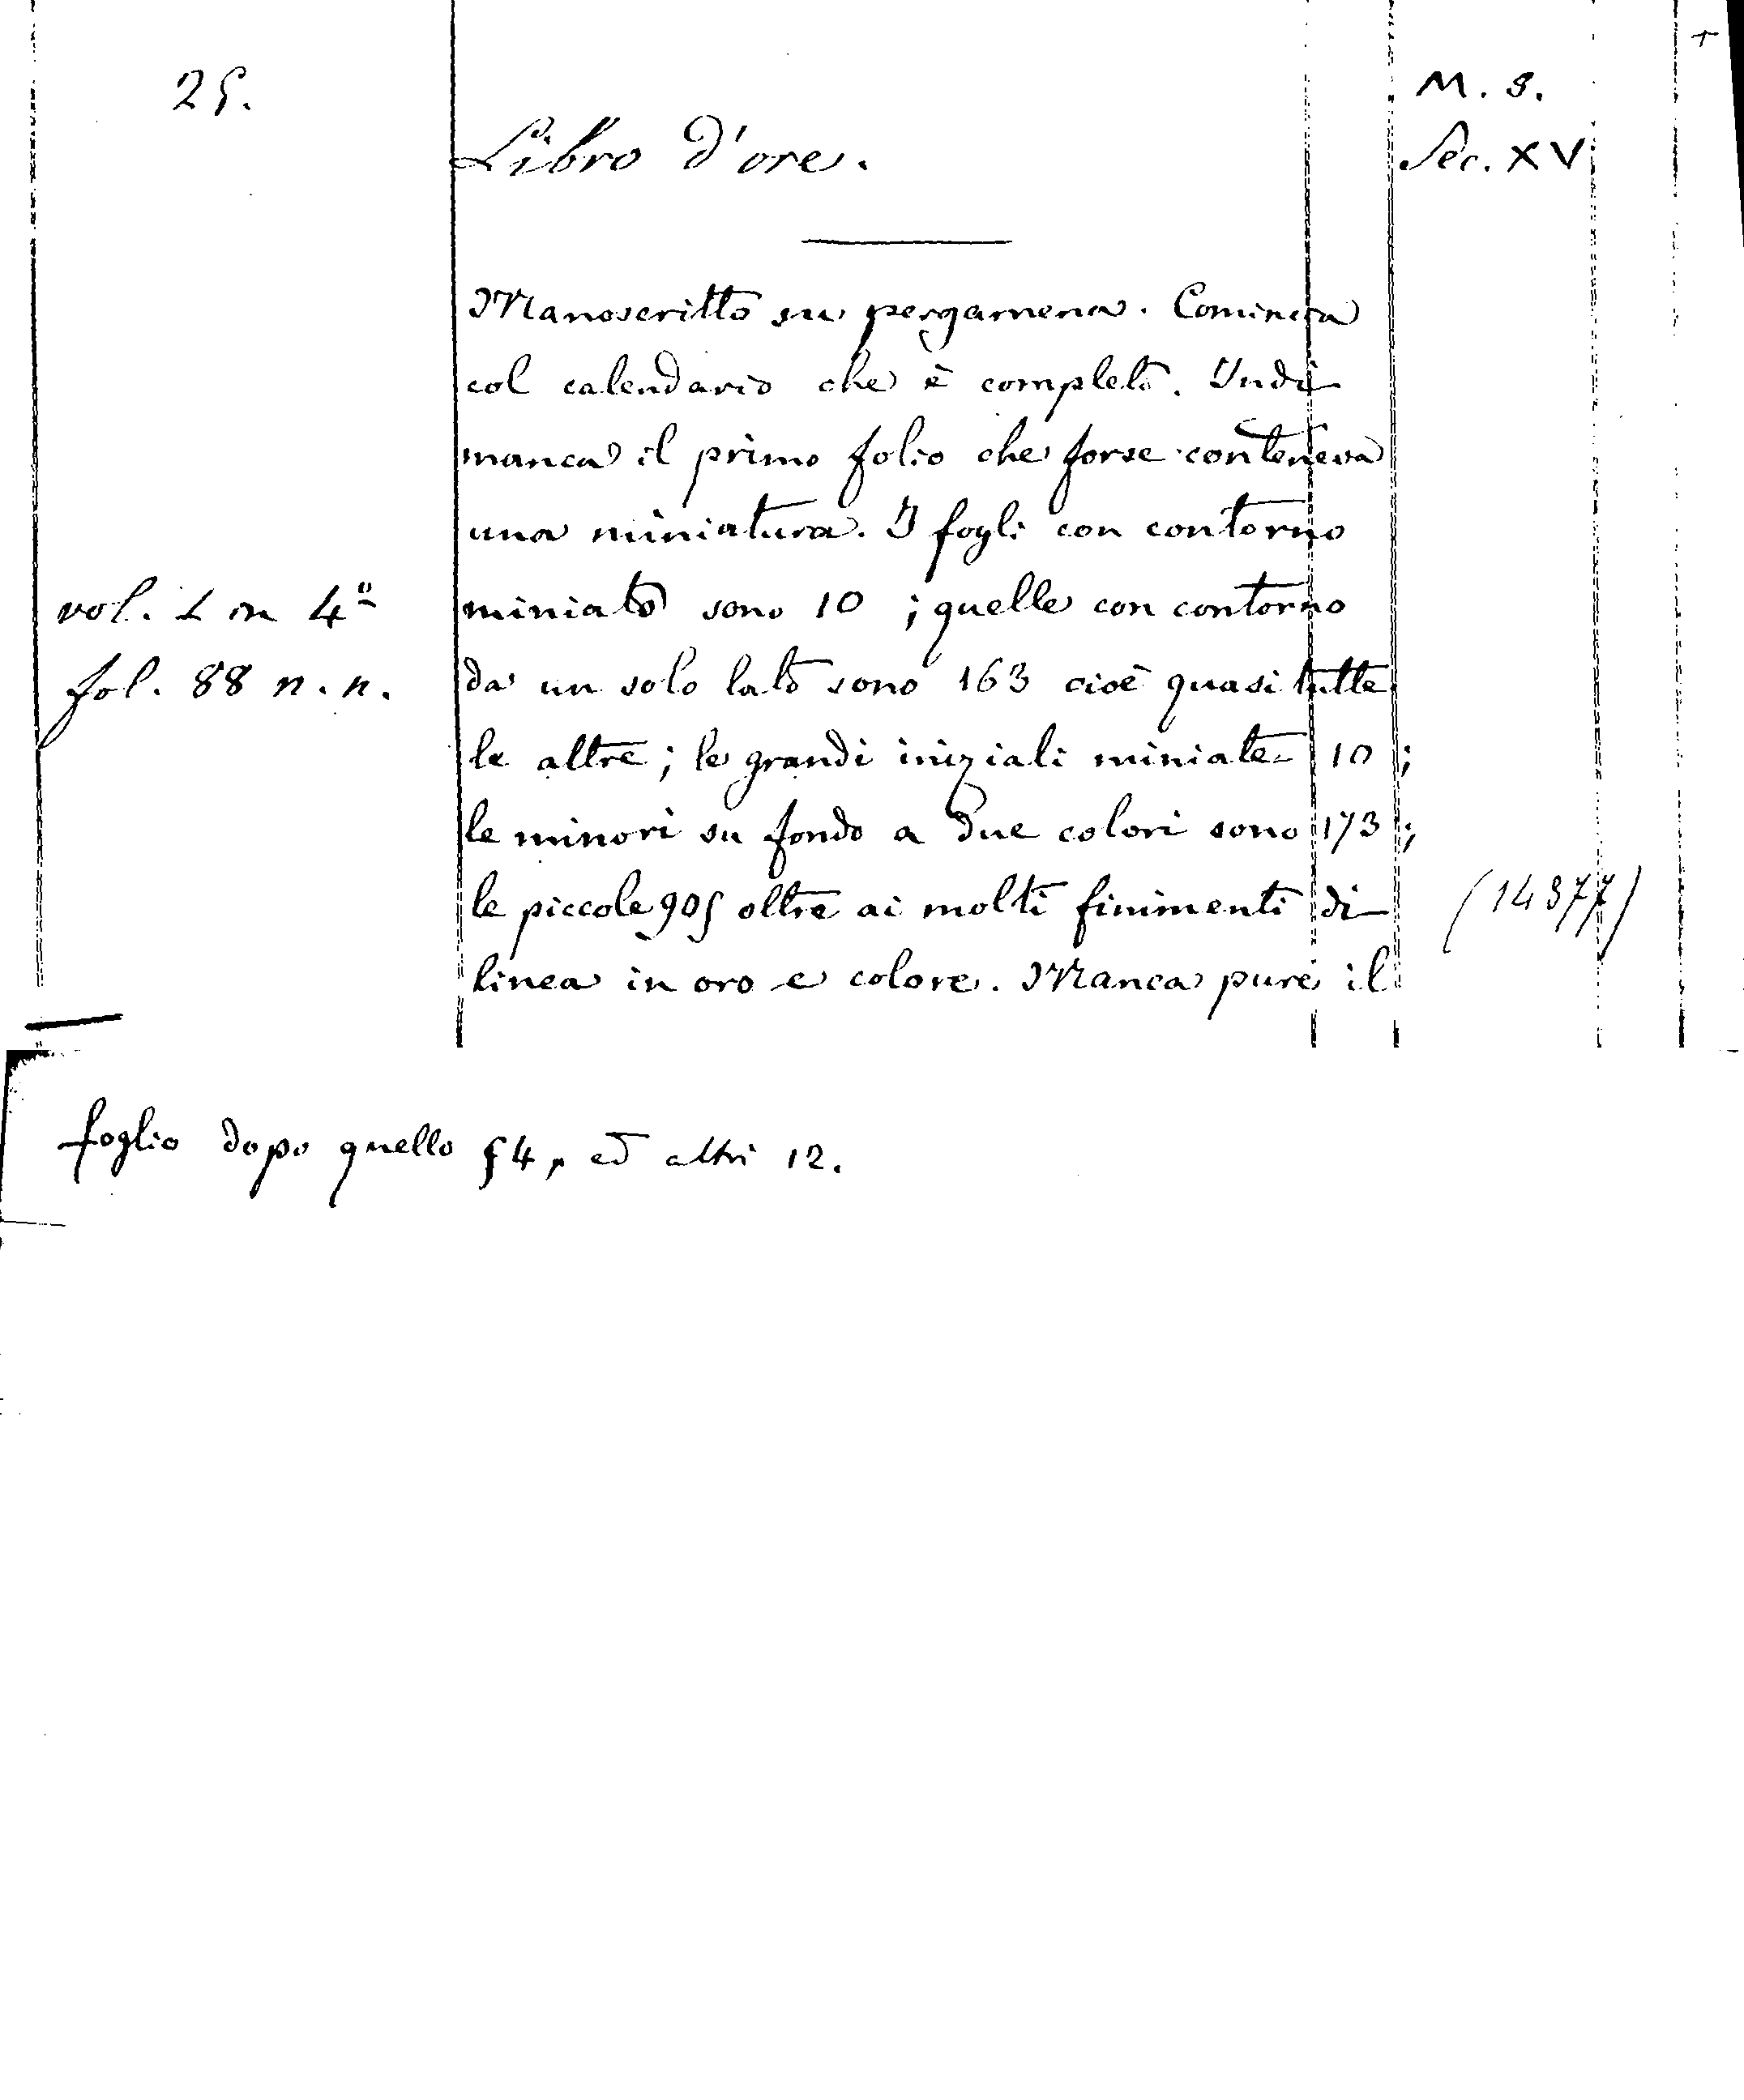 25.
M. S.
Sec. XV
Libro d'ore.
Manoscritto su pergamena. Comincia
col calendario che è completo. Indi
manca il primo folio che forse conteneva
una miniatura. I fogli con contorno
miniato sono 10 ; quelle con contorno
da un solo lato sono 163 cioè quasi tutte
le altre ; le grandi iniziali miniate 10 ;
le minori su fondo a due colori sono 173 ;
le piccole 905 oltre ai molti finimenti di
linea in oro e colore. Manca pure il
vol. 1 in 4º
fol. 88 n. n.
(14377)
foglio dopo quello 54, ed altri 12.